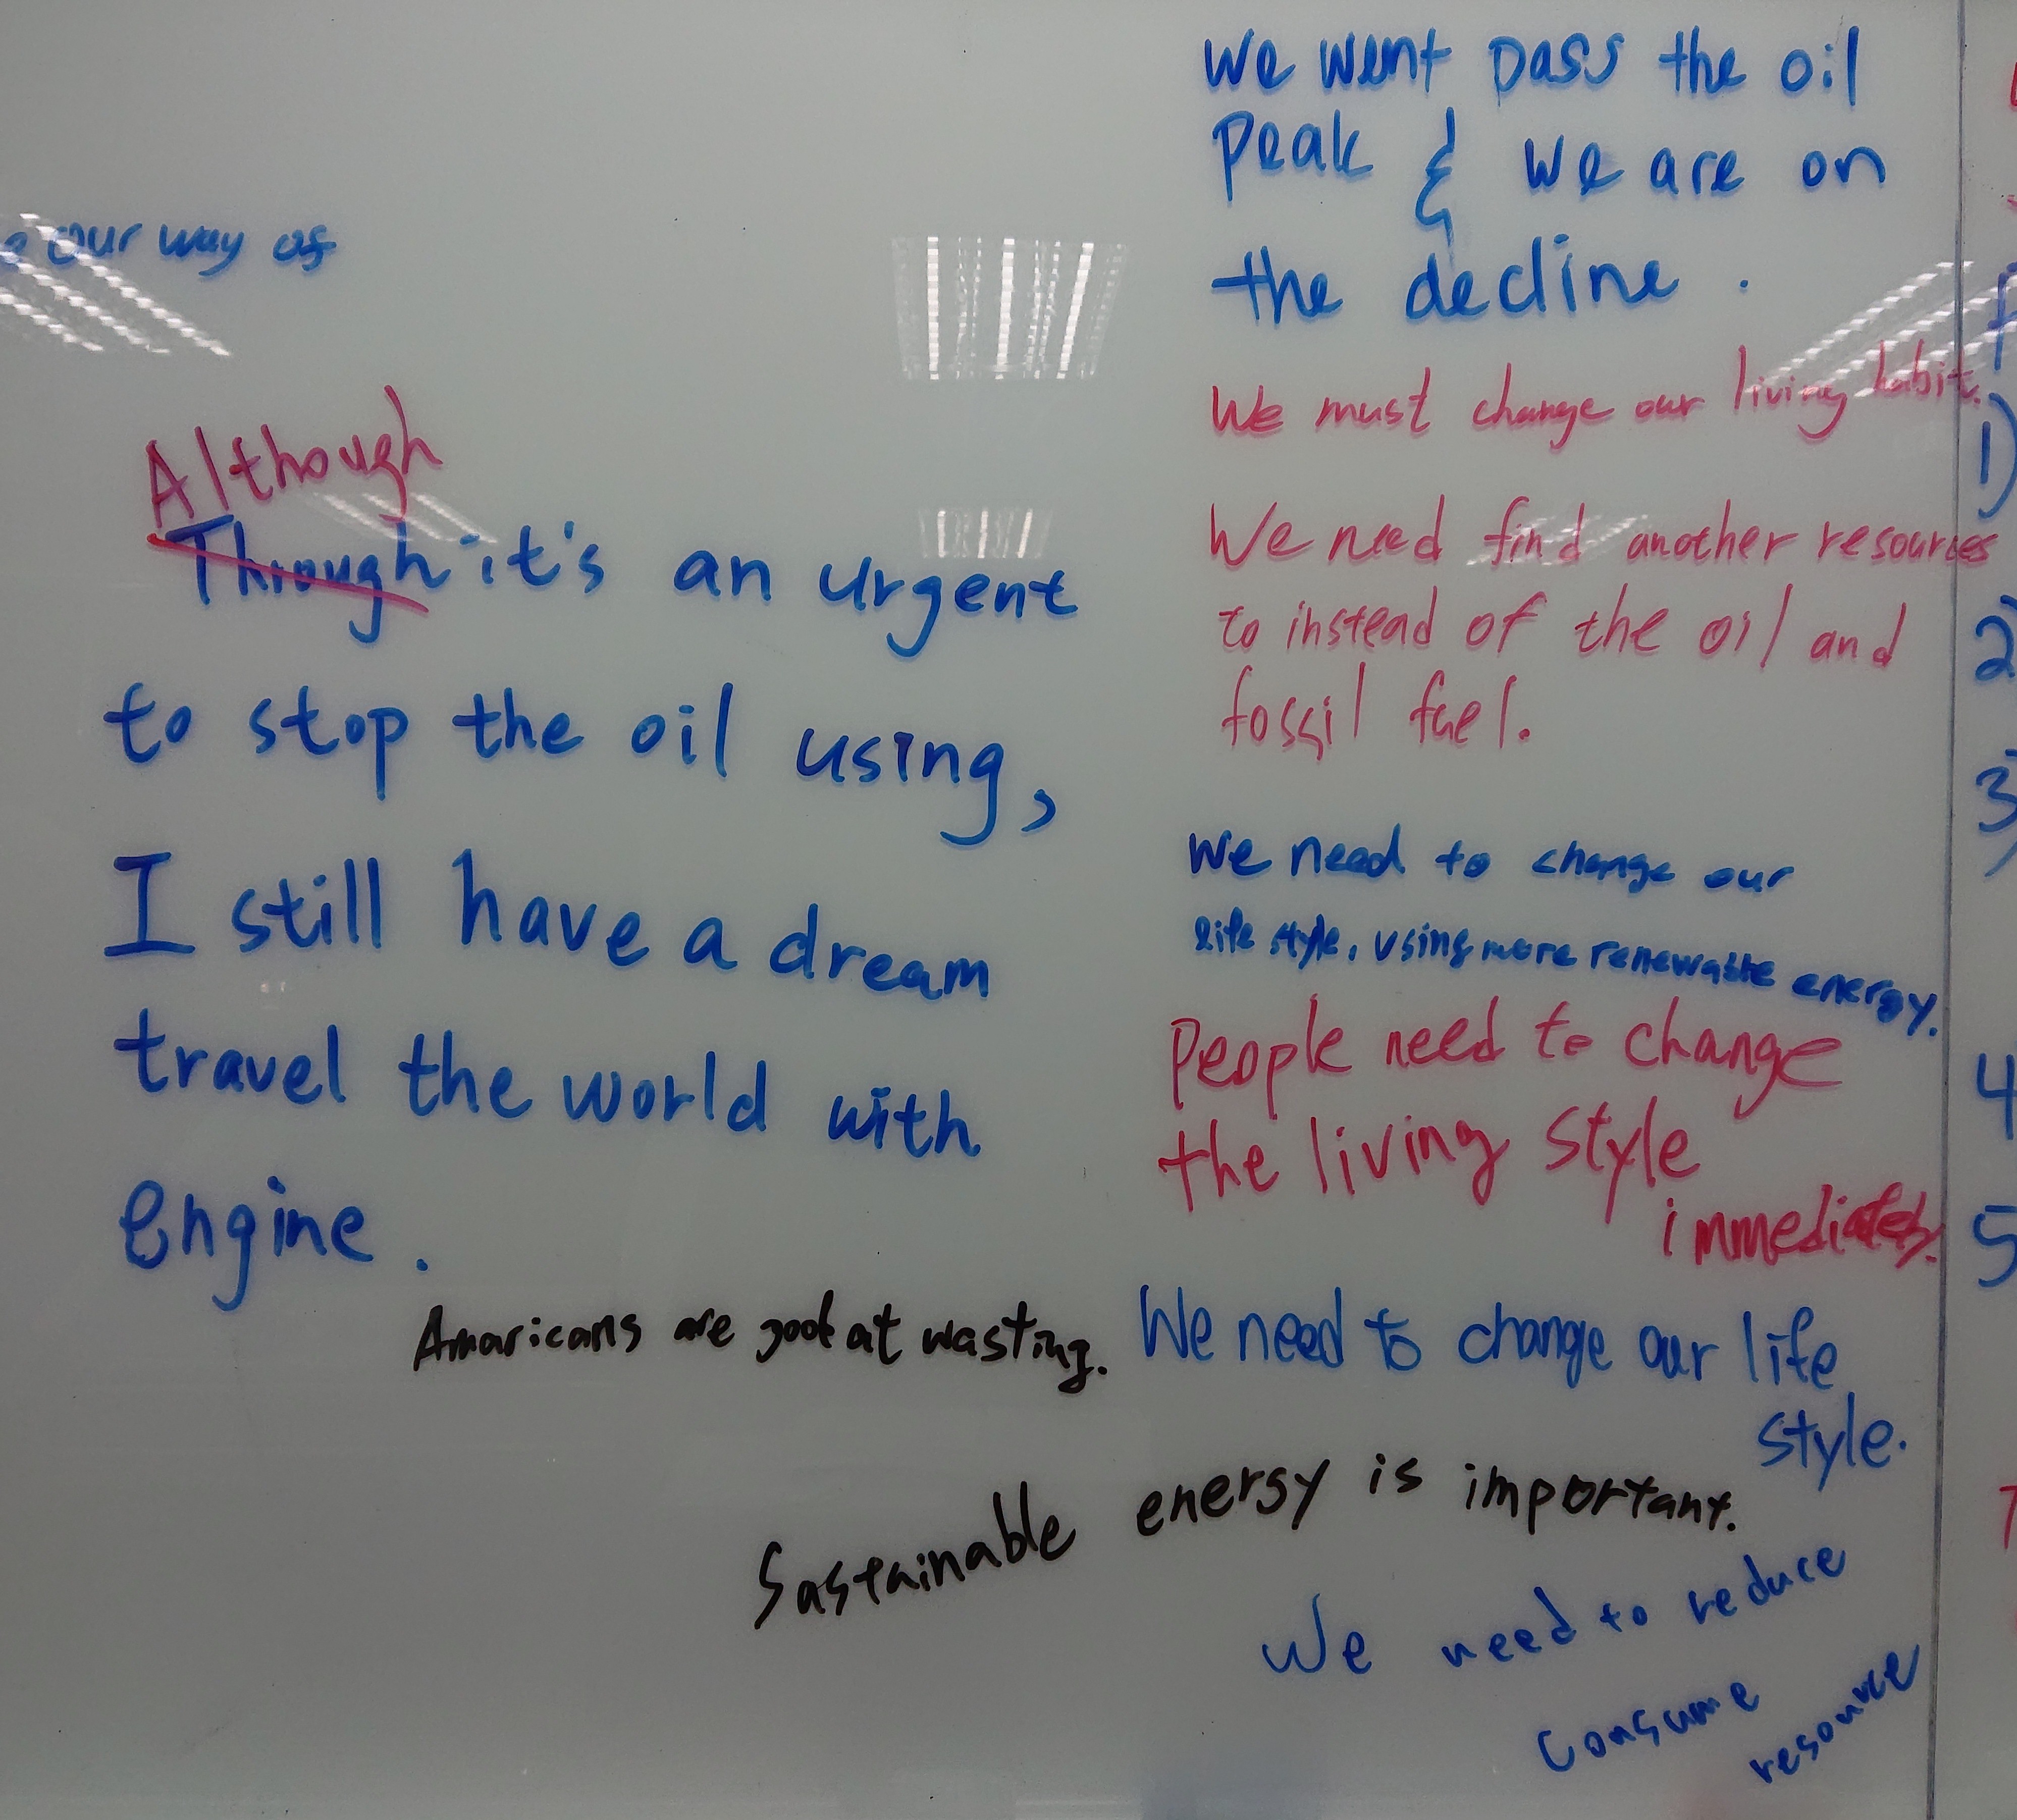 our way of
Although
Through it's an urgent
to stop the oil using,
I still have a dream
travel the world with
engine.
Amaricans are good at wasting.
We went pass the oil
peak & we are on
the decline.
We must change our living habit.
We need find another resources
to instead of the oil and
fossil fuel.
We need to change our
life style, using more renewable energy.
People need to change
the living style
immediately.
We need to change our life
style.
Sastainable energy is important.
We need to reduce
consume
resource
1)
2)
3)
4
5